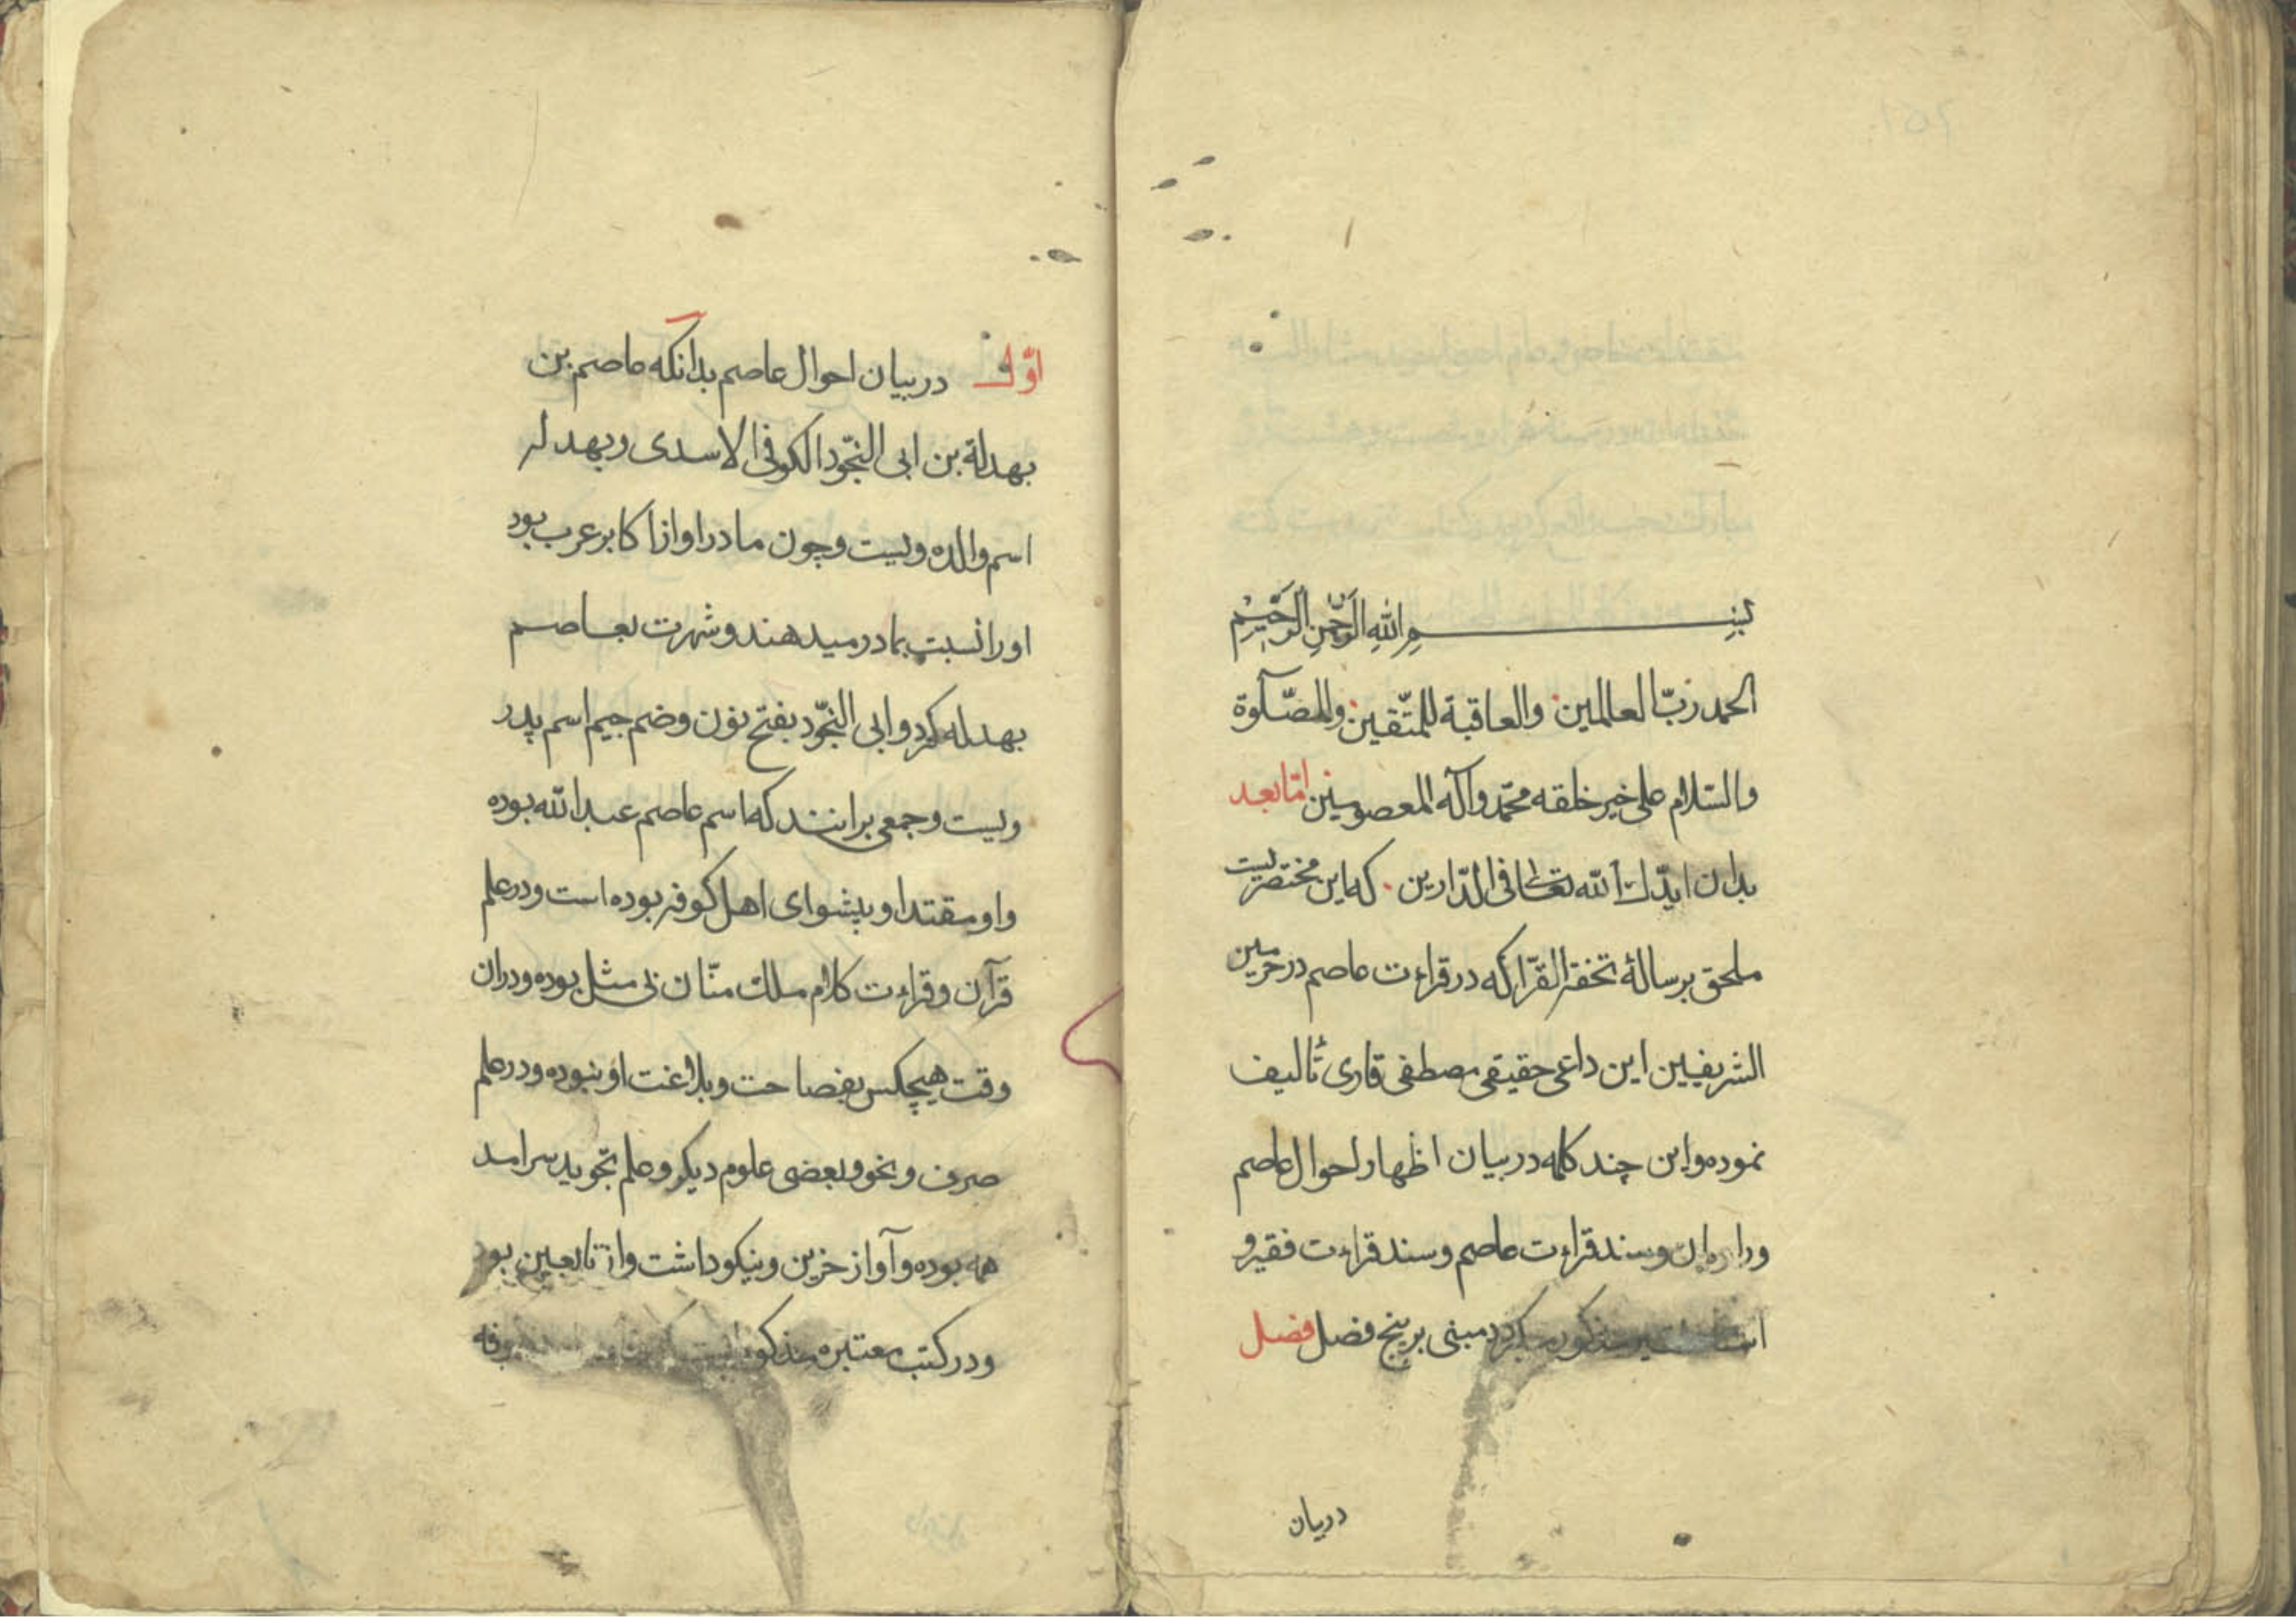 بسم الله الرحمن الرحیم
الحمد ربّ العالمین والعاقبة للمتّقین والصّلوة
والسّلام علی خیر خلقه محمّد وآله المعصومین امّا بعد
بدان ایّدك الله تعالی فی الدّارین که این مختصریست
ملحق برسالۀ تحفة القرّا که در قراءت عاصم در حرمین
الشریفین این داعی حقیقی مصطفی قاری تألیف
نموده واین چند کلمه در بیان اظهار احوال عاصم
وراویان وسند قراءت عاصم وسند قراءت فقیر و
مذکور میکردد مبنی بر پنج فصل فصل
در بیان
اوّل در بیان احوال عاصم بدانکه عاصم بن
بهدلة بن ابی النّجود الکوفی الاسدی وبهدله
اسم والده ویست وچون مادر او از اکابر عرب بود
اورا نسبت بمادر میدهند وشهرت بعاصم
بهدله کرد وابی النّجود بفتح نون وضم جیم اسم پدر
ویست وجمعی برانند که اسم عاصم عبدالله بوده
واو مقتدا وپیشوای اهل کوفه بوده است ودر علم
قرآن وقراءت کلام ملك منّان بی مثل بوده ودران
وقت هیچکس بفصاحت وبلاغت او نبوده ودر علم
صرف ونحو وبعضی علوم دیکر وعلم تجوید سرامد
همه بوده وآواز حزین ونیکو داشت واز تابعین بود
ودر کتب معتبره مذکور